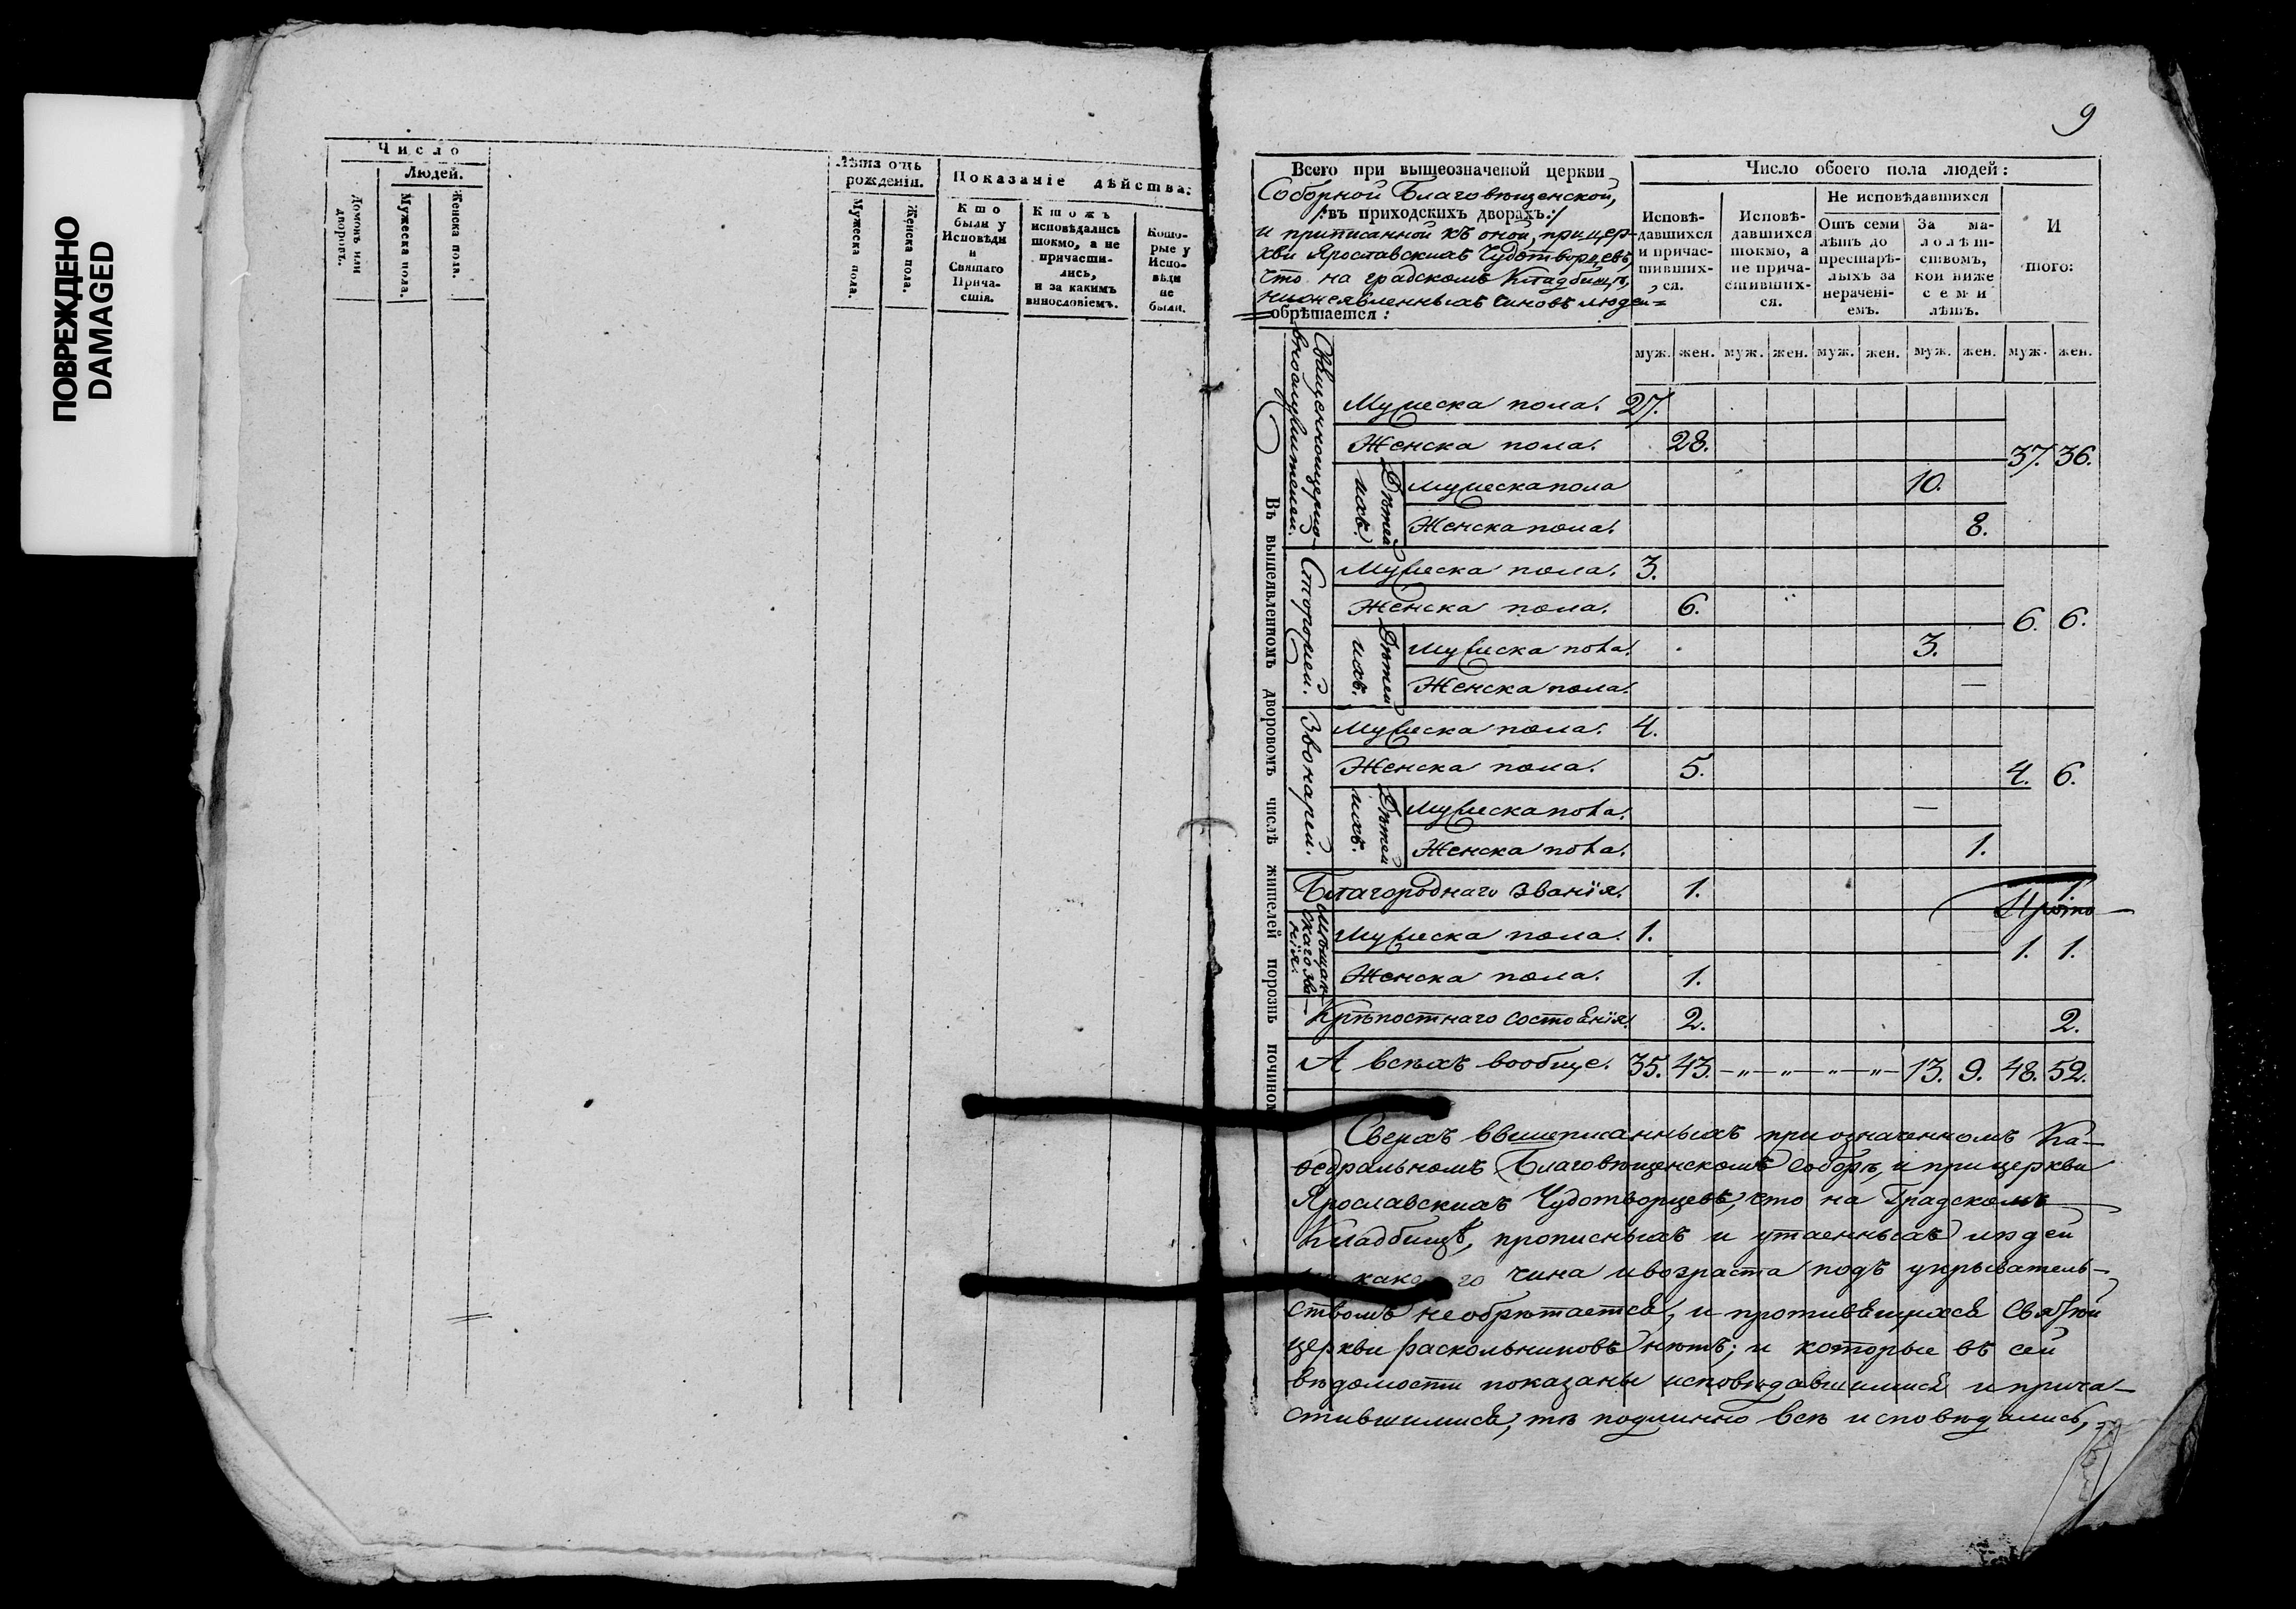 ПОВРЕЖДЕНО
DAMAGED
Число
Людей.
Домовъ или дворовъ.
Мужеска пола.
Женска пола.
Лѣта отъ рожденія.
Мужеска пола.
Женска пола.
Показаніе дѣйства:
Кто
были у
Исповѣди
и
Святаго
Прича-
стія.
Ктожъ
исповѣдались
токмо, а не
причасти-
лись,
и за какимъ
винословіемъ.
Кото-
рые у
Испо-
вѣди
не
были.
9
Всего при вышеозначеной церкви
Соборной Благовѣщенской,
/:въ приходскихъ дворахъ:/
и приписанной къ оной, при цер-
кви Ярославскихъ Чудотворцевъ,
что на градскомъ Кладбищѣ,
нижеявленныхъ чиновъ людей=
обрѣтается:
Число обоего пола людей:
Исповѣ-
давшихся
и причас-
тивших-
ся.
Исповѣ-
давшихся
токмо, а
не прича-
стивших-
ся.
Не исповѣдавшихся
Отъ семи
лѣтъ до
престарѣ-
лыхъ за
нерачені-
емъ.
За ма-
лолѣт-
ствомъ,
кои ниже
семи
лѣтъ.
И
того:
муж. жен. муж. жен. муж. жен. муж. жен. муж. жен.
Въ вышеявленномъ дворовомъ числѣ жителей порознь почином
Священноцерко-
внослужителей.
Мужеска пола. 27.
Женска пола. 28. 37. 36.
Дѣтей ихъ.
Мужеска пола 10.
Женска пола. 8.
Сторожей.
Мужеска пола. 3.
Женска пола. 6. 6. 6.
Дѣтей ихъ.
Мужеска пола. 3.
Женска пола. —
Звонарей.
Мужеска пола. 4.
Женска пола. 5. 4. 6.
Дѣтей ихъ.
Мужеска пола. —
Женска пола. 1.
Благороднаго званія. 1. 1.
Мѣщан-
скаго зва-
нія.
Мужеска пола. 1. 1. 1.
Женска пола. 1.
Крѣпостнаго состоянія. 2. 2.
А всѣхъ вообще. 35. 43. —„—„—„—„— 13. 9. 48. 52.
Сверхъ вышеписанныхъ при означенномъ Ка-
ѳедральномъ Благовѣщенскомъ соборѣ, и при церкви
Ярославскихъ Чудотворцевъ, что на Градскомъ
Кладбищѣ, прописныхъ и утаенныхъ людей
чина и возраста подъ укрыватель-
ствомъ необрѣтается, и противящихся Святой
церкви раскольниковъ нѣтъ; и которые въ сей
вѣдомости показаны исповѣдавшимися и прича-
стившимися, тѣ подлинно всѣ исповѣдались,